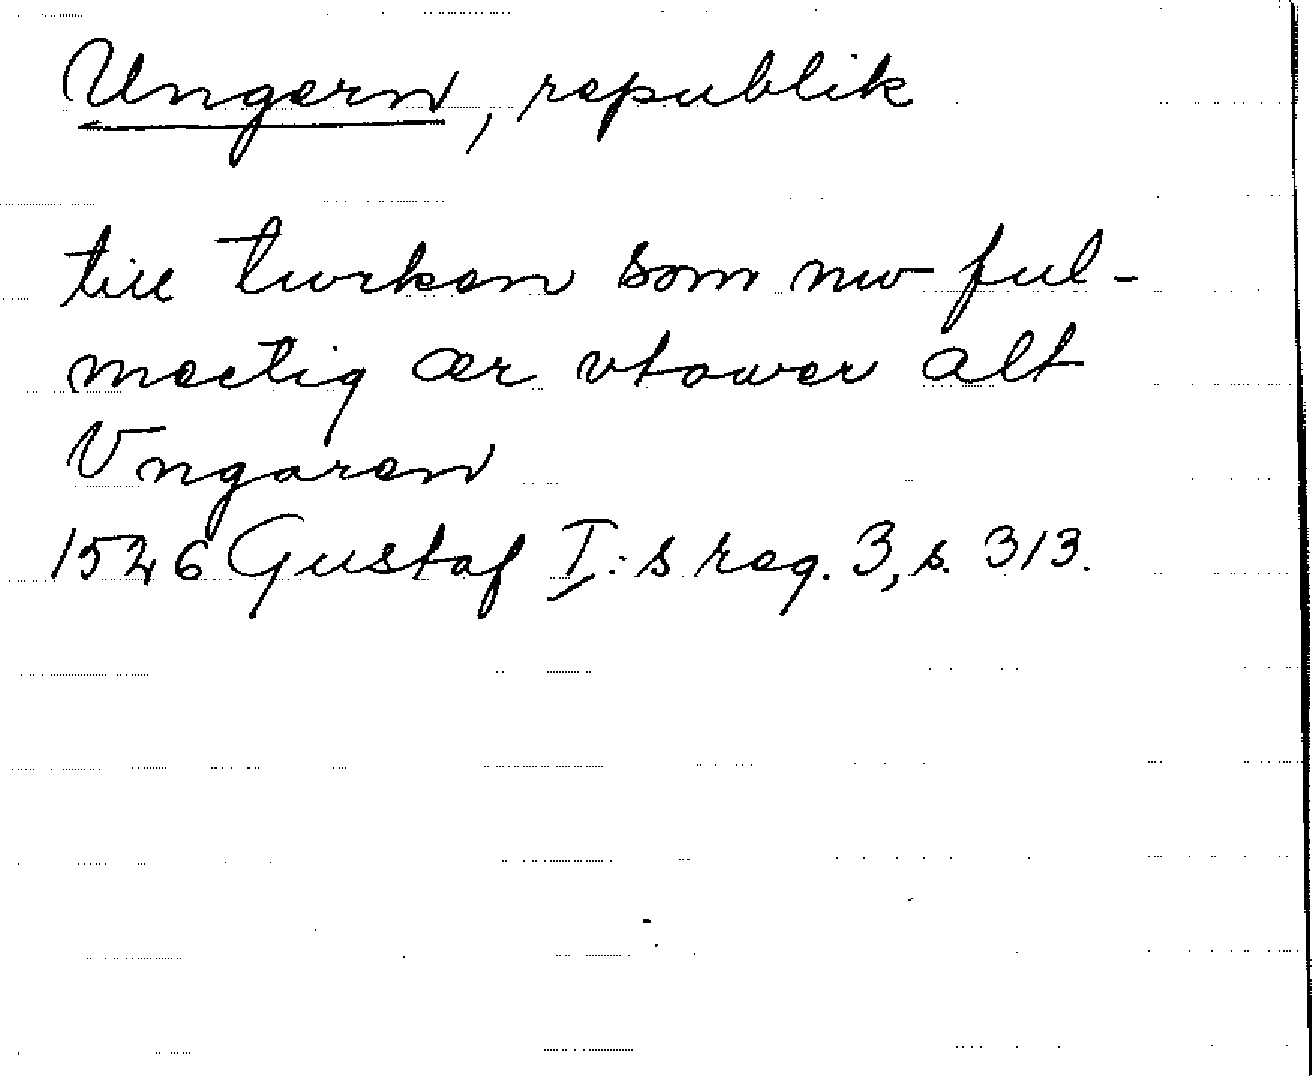 Ungern, republik
till turken som nw ful-
mectig ær vtower alt
Vngeren
1526 Gustaf I:s reg. 3, s. 313.